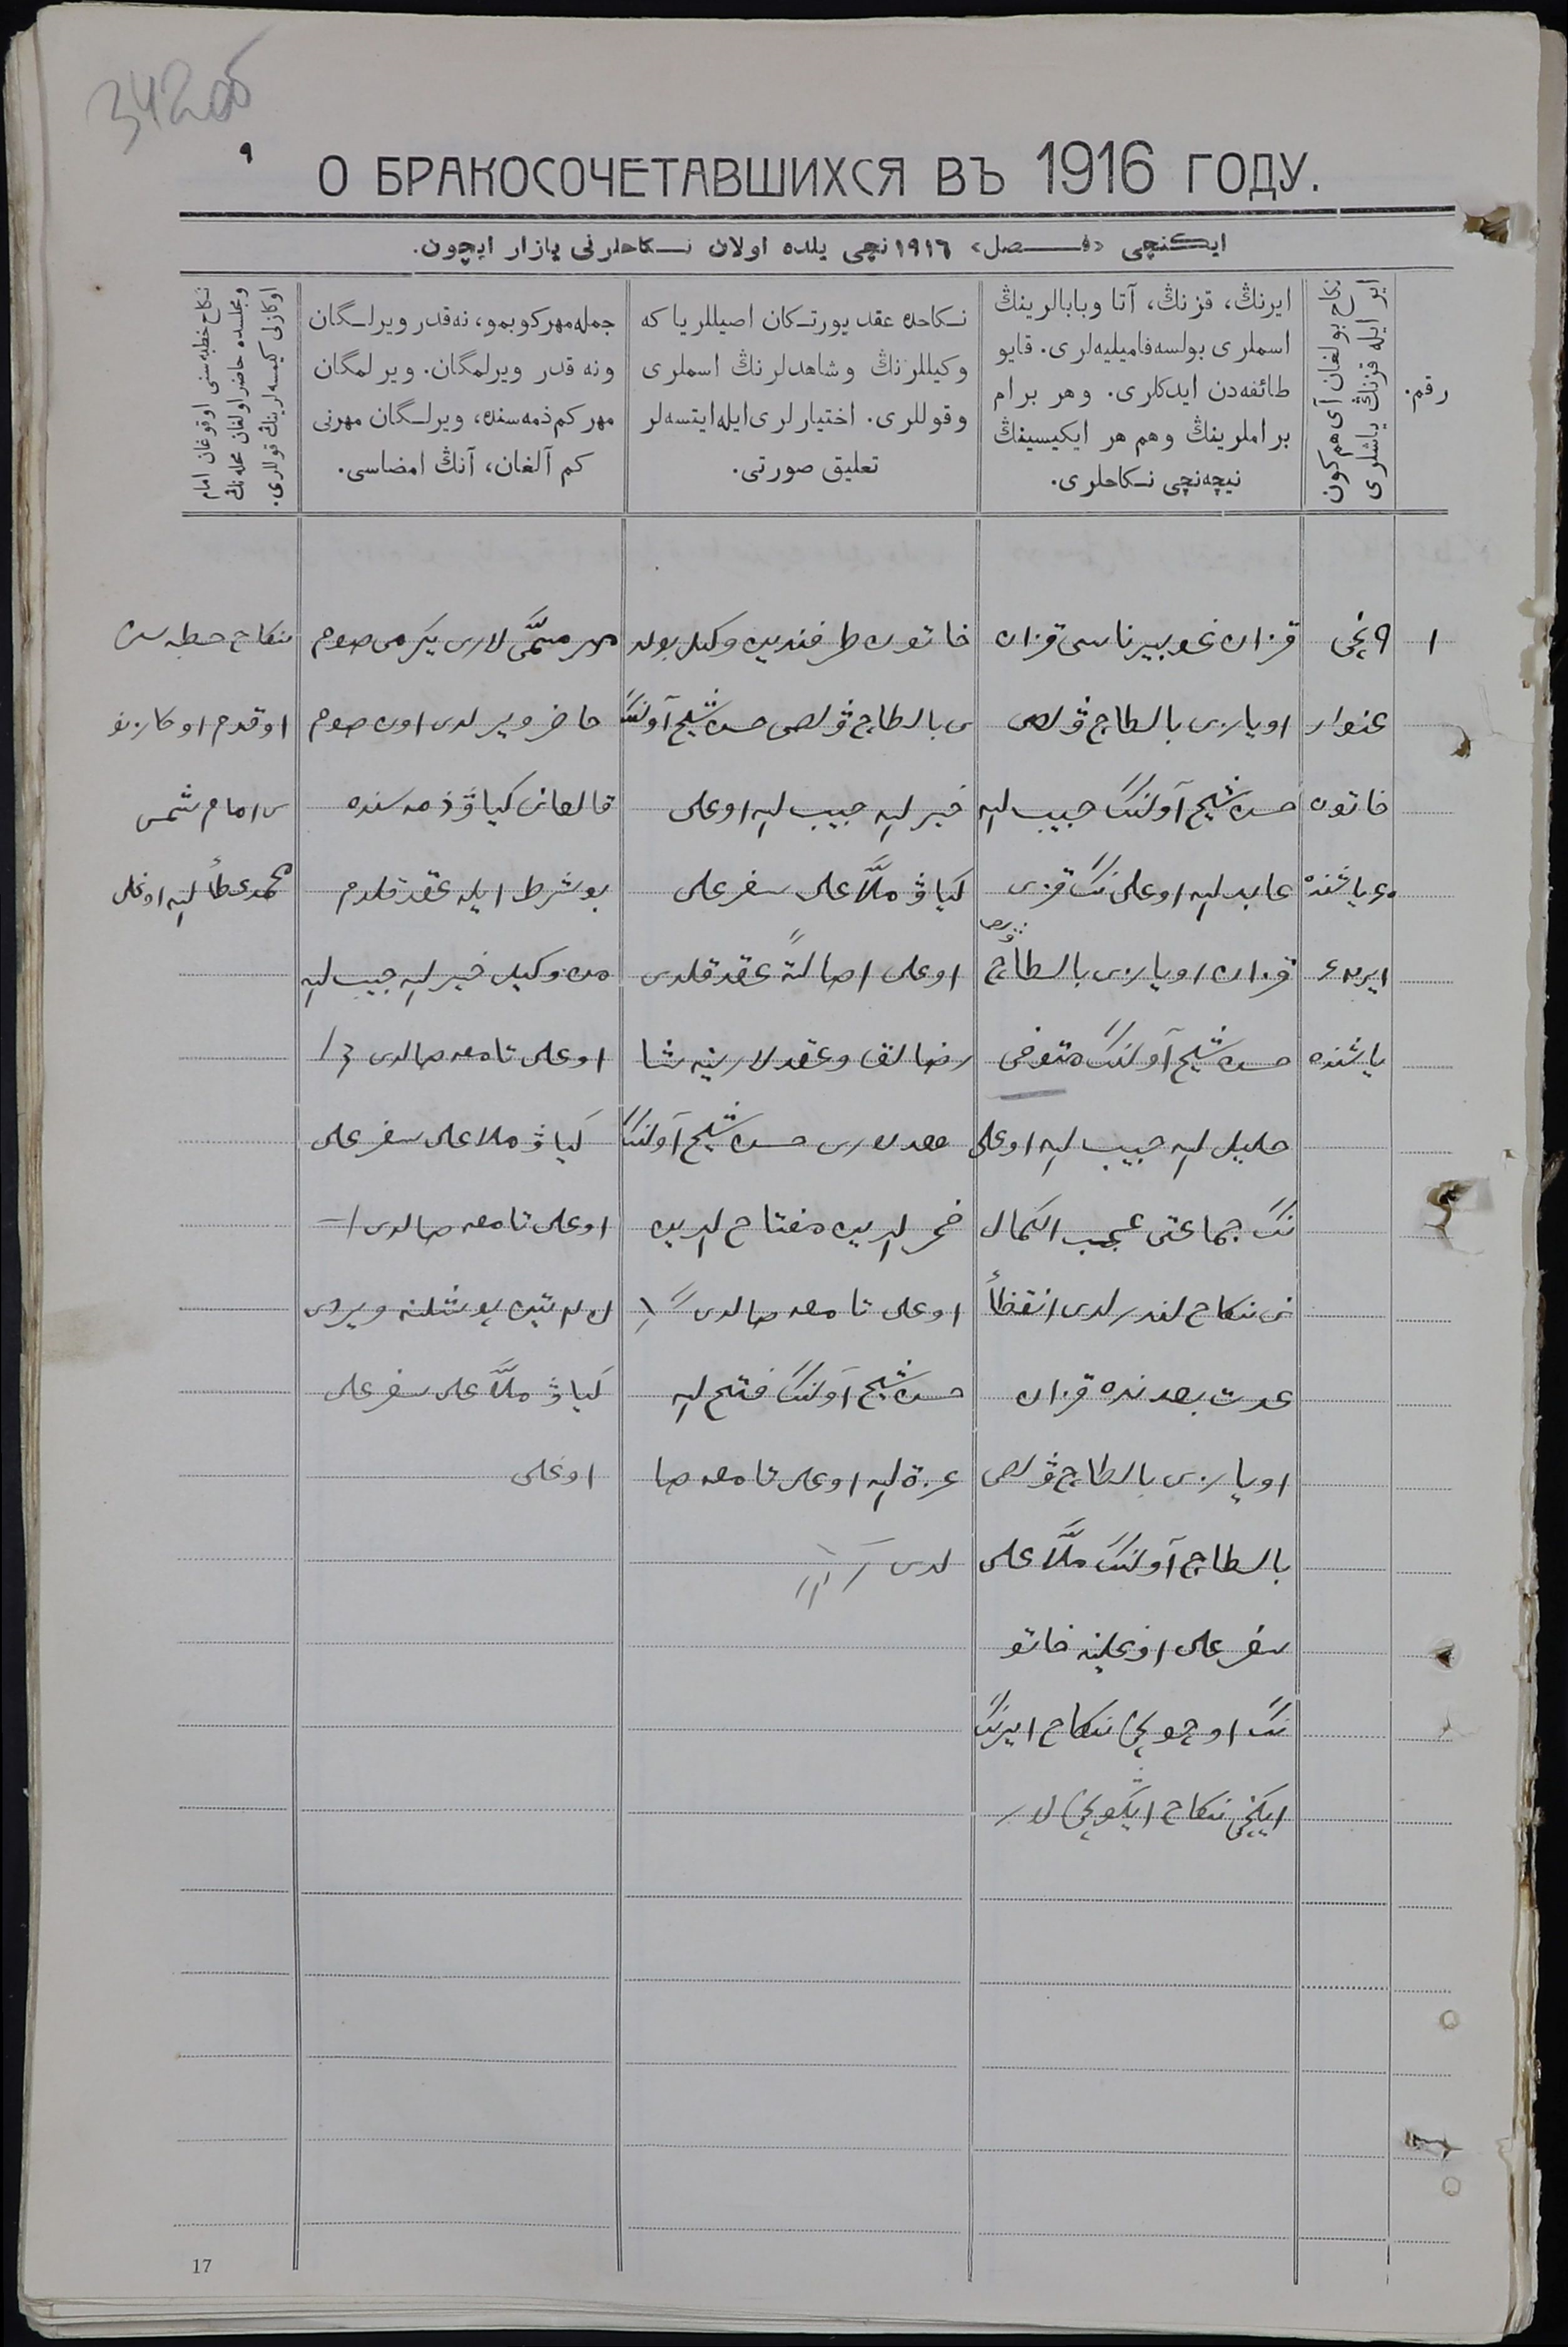 342об
٩
О БРАКОСОЧЕТАВШИХСЯ ВЪ 1916 ГОДУ.
ایكنچی «فصل» ١٩١٦نچی یلده اولان نكاحلرنی یازار ایچون.
رقم.
نكاح بولغان آی هم كون
ایر ایله قزنڭ یاشلری
ایرنڭ، قزنڭ، آتا وبابالرینڭ
اسملری بولسه فامیلیه‌لری. قایو
طائفه‌دن ایدكلری. وهر برام
براملرینڭ وهم هر ایكیسینڭ
نیچه‌نچی نكاحلری.
نكاحده عقد یورتكان اصیللر یا كه
وكیللرنڭ وشاهدلرنڭ اسملری
وقوللری. اختیارلری ایله ایتسه‌لر
تعلیق صورتی.
جمله مهر كوبمو، نه‌قدر ویرلـگان
ونه قدر ویرلمگان. ویرلمگان
مهر كم ذمه‌سنده، ویرلـگان مهرنی
كم آلغان، آنڭ امضاسی.
نكاح خطبه‌سنی اوقوغان امام
ومجلسده حاضر اولغان محله‌نڭ
اوكازلی كیسه‌لرینڭ قوللری.
١
٩ نچی
غنوار
خاتون
یاشنده
ایر
یاشنده
قزان غوبیرناسی قزان
اویازی بالطاچ ۋلصی
حسن شیخ آولنڭ حبیب الله
عابد الله اوغلی نڭ قزی
قزان اویازی بالطاچ
ۋلص
حسن شیخ آولنڭ متوفی
خلیل الله حبیب الله اوغلی
نڭ جماعتی عجب الكمال
نی نكاحلندرلدی انقضأ
عدت بعدنده قزان
اویازی بالطاچ ۋلصی
بالطاچ آولنڭ ملّا علی
سفر علی اوغلینه خاتو
نڭ اوچونچی نكاح ایرنڭ
ایكنچی نكاح
خاتون طرفندین وكیل بولد
ی بالطاچ ۋلصی حسن شیخ آولنڭ
خیر الله حبیب الله اوغلی
كیاۋ ملّا علی سفر علی
اوغلی اصالةً عقد قلدی
رضالق وعقدلارینه شا
هدلاری حسن شیخ آولنڭ
فخر الدین مفتاح الدین
اوغلی تامغه صالدی
حسن شیخ آولنڭ فتح الله
عزة الله اوغلی تامغه صا
لدی
مهر مسمّی لاری یكرمی صوم
حاضر ویرلدی اون صوم
قالغانی كیاۋ ذمه سنده
بو شرط ایله عقد قلدم
من وكیل خیر الله حبیب الله
اوغلی تامغه صالدی
كیاۋ ملا علی سفر علی
اوغلی تامغه صالدی
كیاۋ ملّا علی سفر علی
اوغلی
نكاح خطبه سن
اوقدم اوكازنو
ی امام شمس
محمدی عطأ الله اوغلی
17